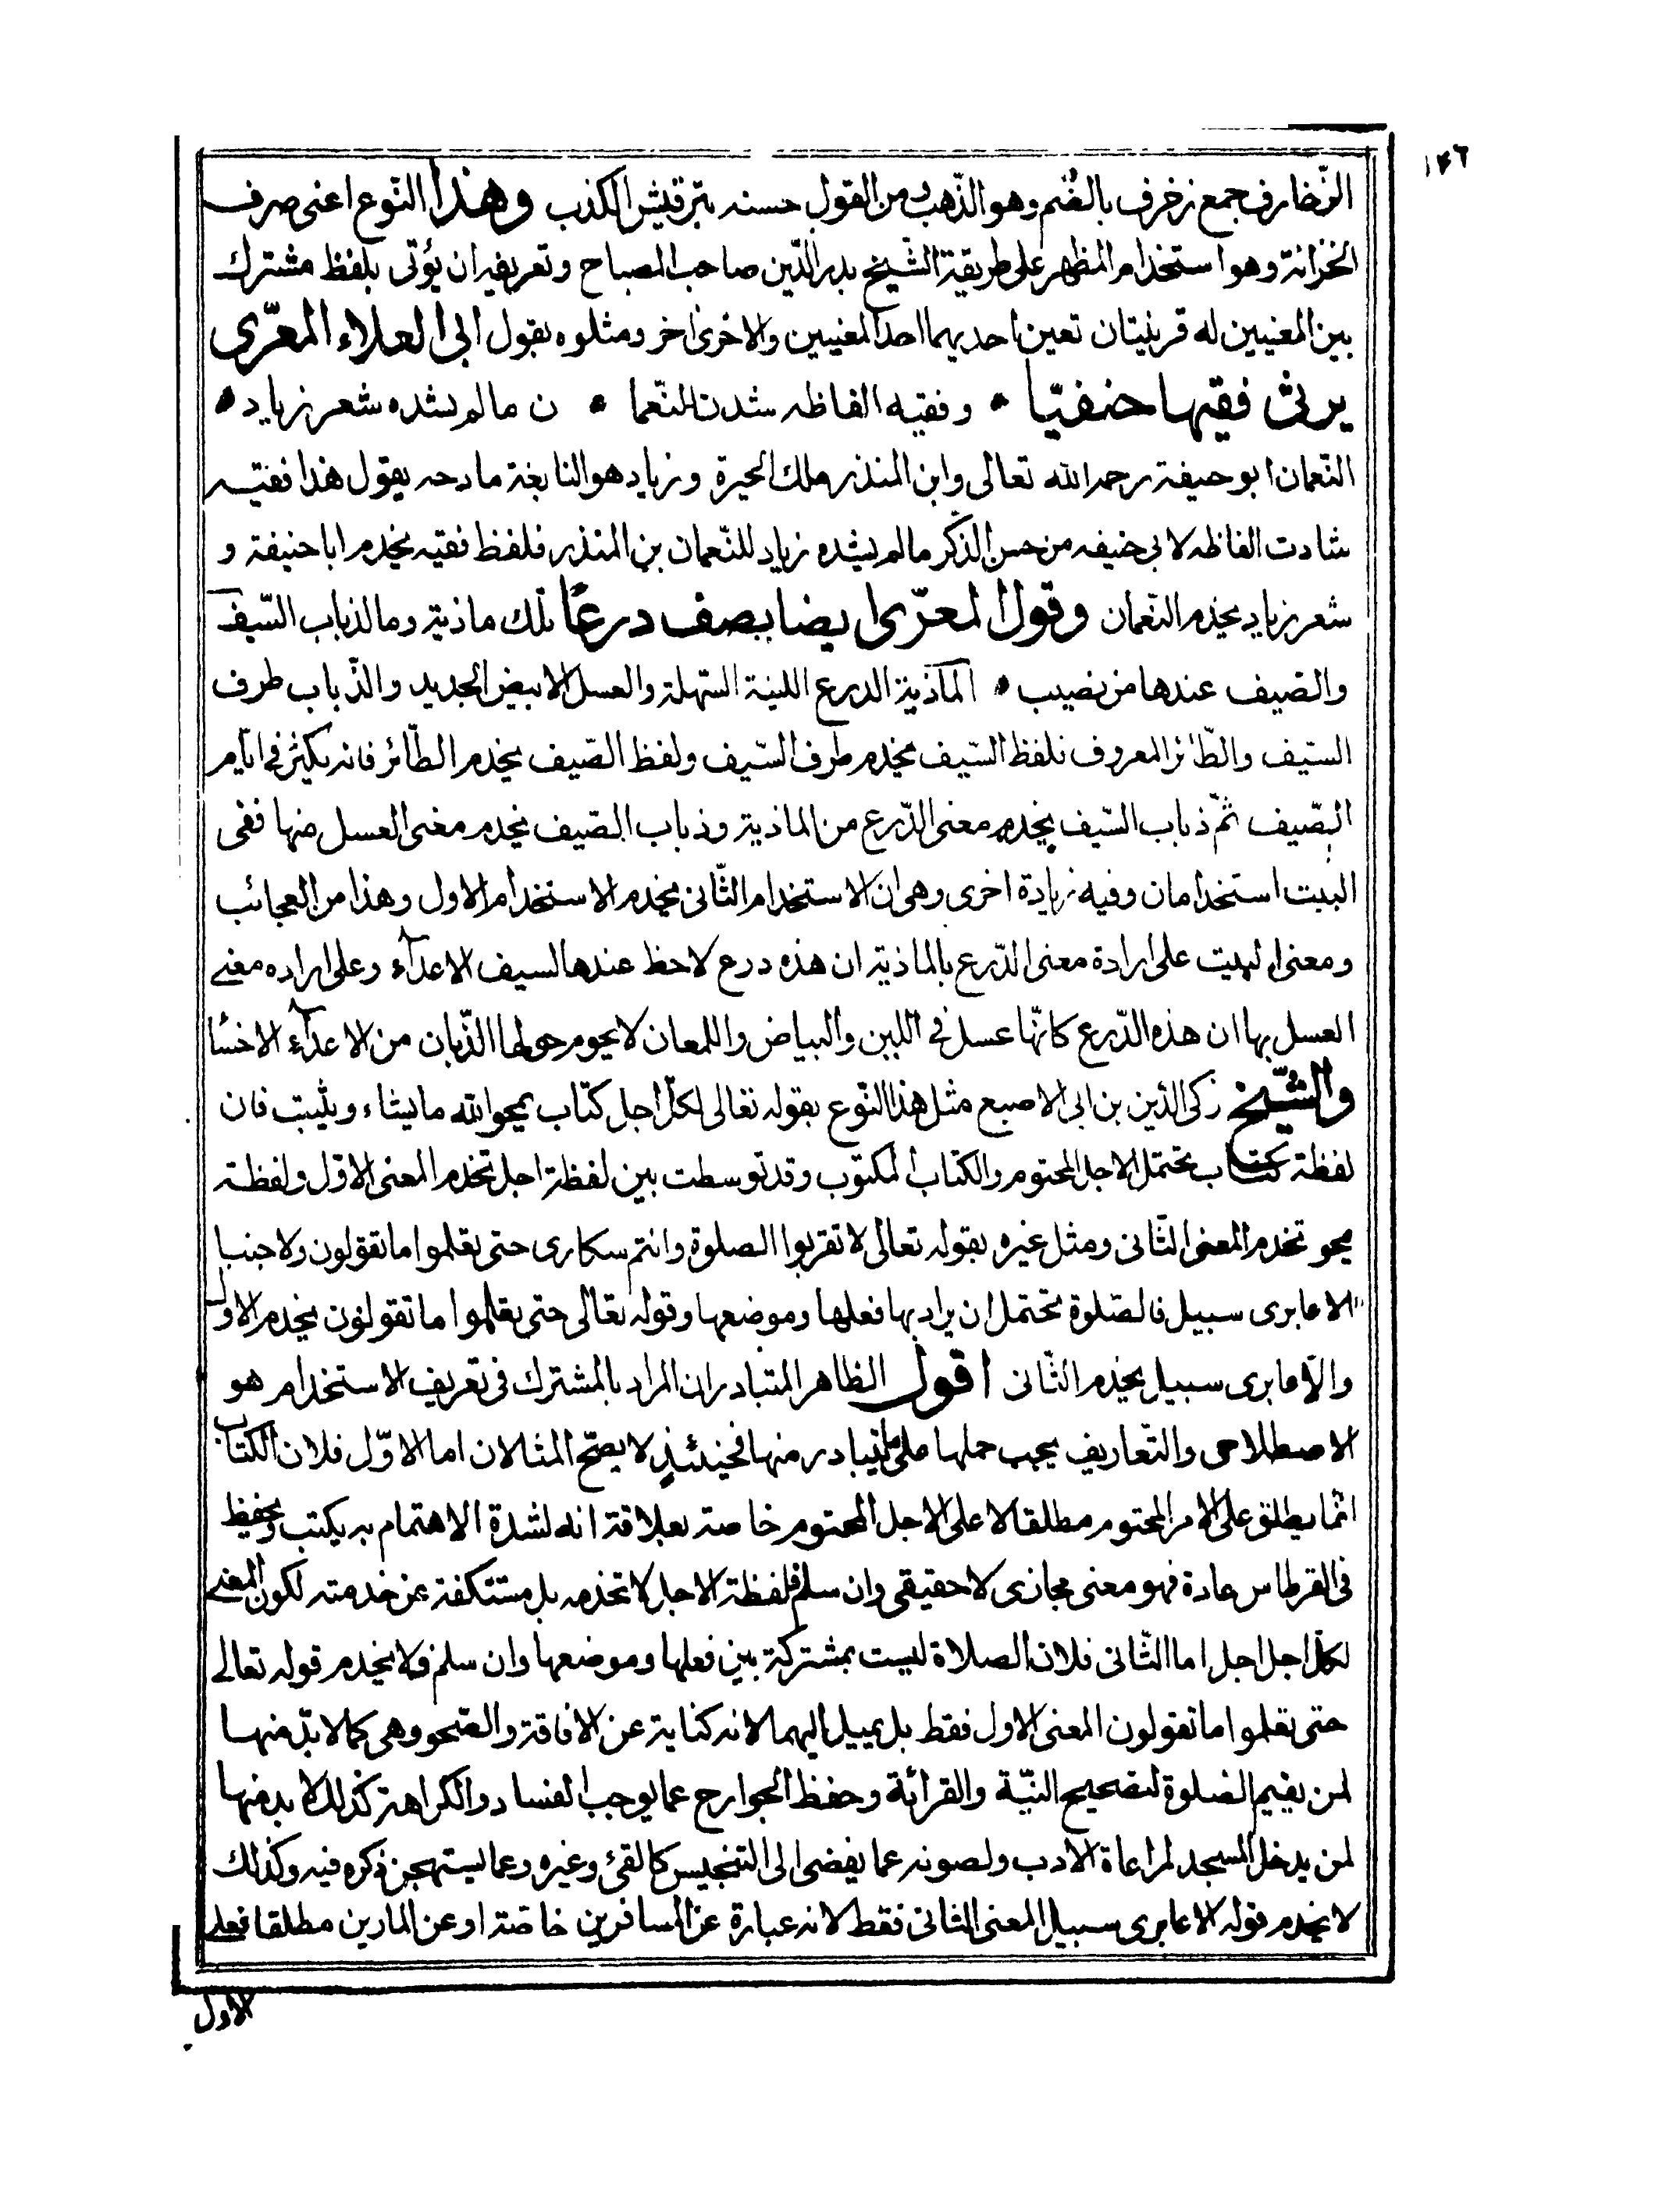 ١٤٦
الزّخارف جمع زخرف بالضّم وهو الذّهب ومن القول حسنه بترقيش الكذب وهذا النّوع اعنى صرف
الخزانة وهو استخدام المظهر على طريقة الشّيخ بدر الدّين صاحب المصباح وتعريفه ان يؤتى بلفظ مشترك
بين المعنيين له قرينتان تعين احديهما احد المعنيين والاخرى اخر ومثلوه بقول ابى العلاء المعّرى
يرثى فقيها حنفيّا • وفقيه الفاظه شدن للنّعما • ن مالم يشده شعر زياد •
النّعمان ابو حنيفة رحمه الله تعالى وابن المنذر ملك الحيرة وزياد هو النابغة مادحه يقول هذا فقيه
شادت الفاظه لابى حنيفه من حسن الذكر مالم يشده زياد للنّعمان بن المنذر فلفظ فقيه يخدم ابا حنيفة و
شعر زياد يخدم النّعمان وقول المعرّى ايضا يصف درعًا تلك ماذية وما لذباب السّيف
والصّيف عندها من نصيب • الماذية الدرع اللينة السّهلة والعسل الابيض الجديد والذّباب طرف
السّيف والطّائر المعروف فلفظ السّيف يخدم طرف السّيف ولفظ الصّيف يخدم الطّائر فانه يكثر فى ايّام
الصّيف ثمّ ذباب السّيف يخدم معنى الدّرع من الماذية وذباب الصّيف يخدم معنى العسل منها ففى
البيت استخدامان وفيه زيادة اخرى وهى ان الاستخدام الثّانى يخدم الاستخدام الاول وهذا من العجائب
ومعنى البيت على ارادة معنى الدّرع بالماذية ان هذه درع لاحظ عندها لسيف الاعدآء وعلى اراده معنى
العسل بها ان هذه الدّرع كانّها عسل فى اللين والبياض واللمعان لا يحوم حولها الذّبان من الاعدآء الاخسّا
والشّيخ زكى الدّين بن ابى الاصبع مثل هذا النّوع بقوله تعالى لكلّ اجل كتاب يمحو الله ما يشاء ويثبت فان
لفظة كتاب يحتمل الاجل المحتوم والكتاب المكتوب وقد توسطت بين لفظة اجل تخدم المعنى الاوّل ولفظة
يمحو تخدم المعنى الثّانى ومثل غيره بقوله تعالى لا تقربوا الصلوة وانتم سكارى حتى تعلموا ما تقولون ولا جنبا
الا عابرى سبيل فالصّلوة تحتمل ان يراد بها فعلها وموضعها وقوله تعالى حتى تعلموا ما تقولون يخدم الاول
والّا عابرى سبيل يخدم الثّانى اقول الظاهر المتبادر ان المراد بالمشترك فى تعريف الاستخدام هو
الاصطلاحى والتّعاريف يجب حملها على ما يتبادر منها فحينئذٍ لا يصحّ المثالان اما الاوّل فلان الكتاب
انّما يطلق على الامر المحتوم مطلقا لا على الاجل المحتوم خاصة بعلاقة انه لشدة الاهتمام به يكتب ويحفظ
فى القرطاس عادة فهو معنى مجازى لا حقيقى وان سلم فلفظة الاجل لا تخدمه بل مستنكفة عن خدمته لكون المعنى
لكلّ اجل اجل اما الثّانى فلان الصلاة ليست بمشتركة بين فعلها وموضعها وان سلم فلا يخدم قوله تعالى
حتى تعلموا ما تقولون المعنى الاول فقط بل يميل اليهما لانه كناية عن الافاقة والصّحو وهى كما لا بدّ منها
لمن يقيم الصلوة لتصحيح النيّة والقرائة وحفظ الجوارح عما يوجب الفساد والكراهة كذلك لا بد منها
لمن يدخل المسجد لمراعاة الادب ولصونه عما يفضى الى التنجيس كالقئ وغيره وعما يستهجن ذكره فيه وكذلك
لا يخدم قوله الا عابرى سبيل المعنى الثانى فقط لانه عبارة عن المسافرين خاصة او عن المارين مطلقا فعلى
الاول